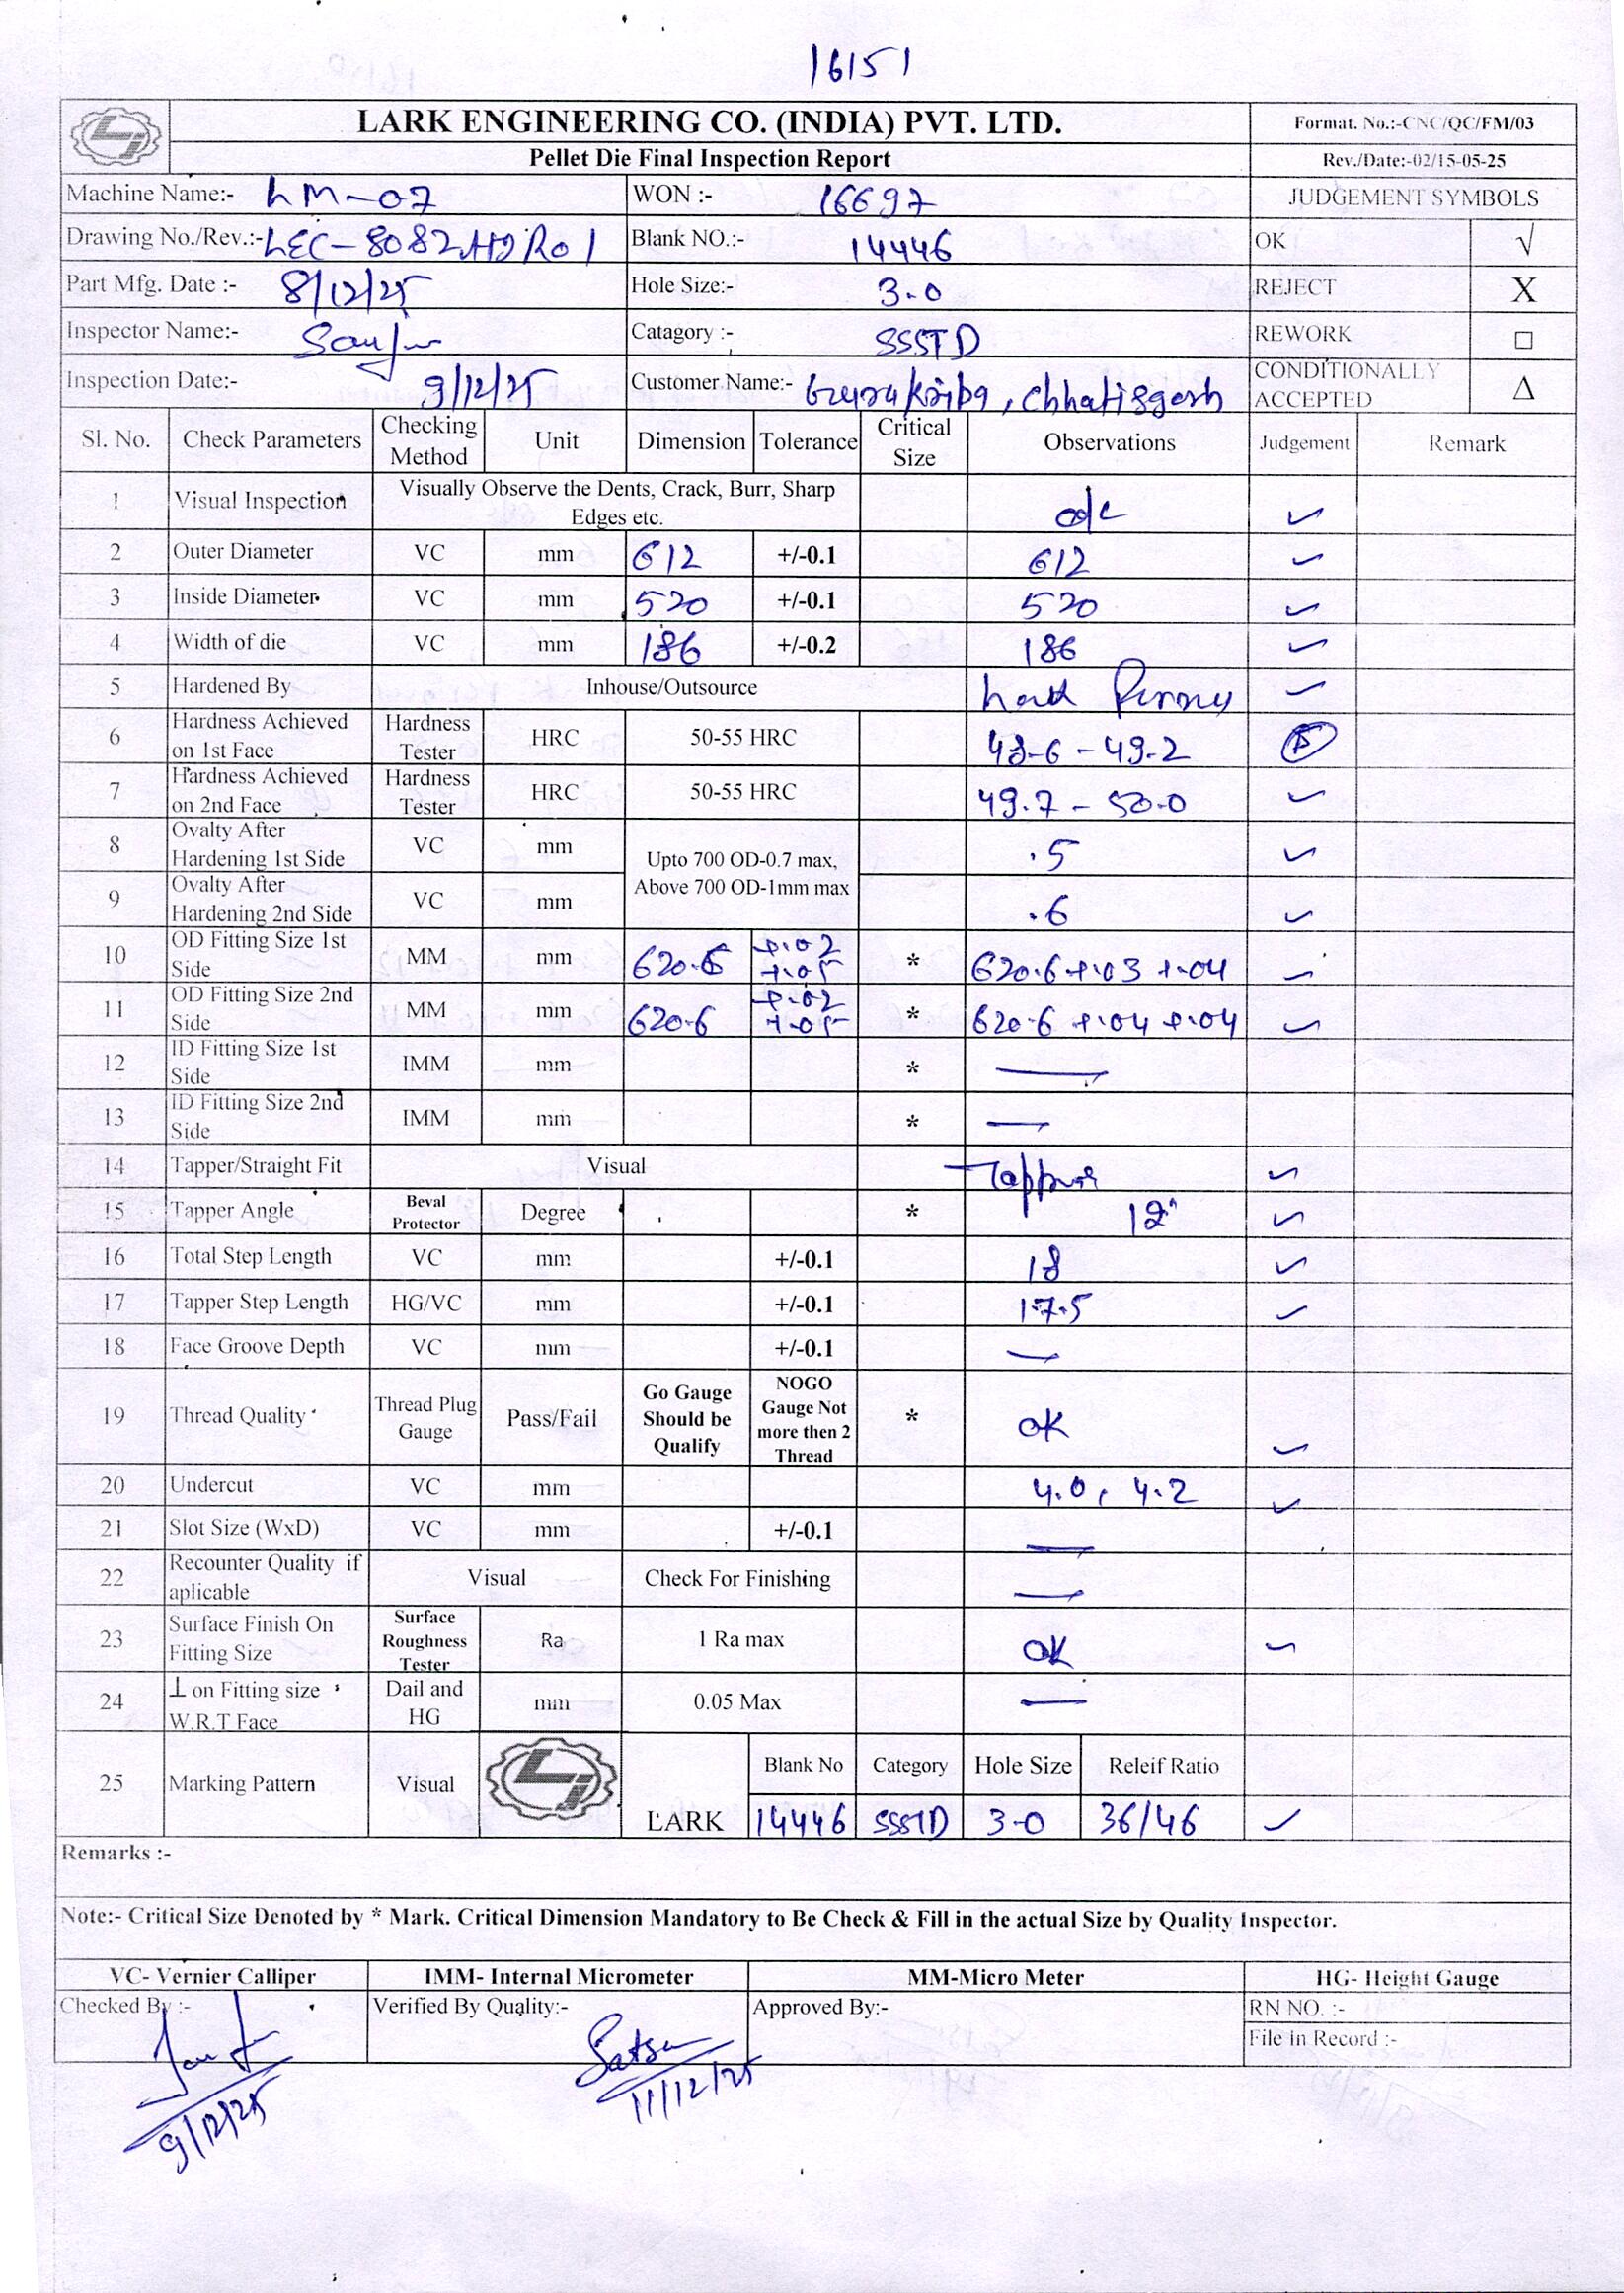 16151
LARK ENGINEERING CO. (INDIA) PVT. LTD.
Format. No.:-CNC/QC/FM/03
Pellet Die Final Inspection Report
Rev./Date:-02/15-05-25
Machine Name:- LM-07 WON :- 16697 JUDGEMENT SYMBOLS
Drawing No./Rev.:- LEC-8082 R01 Blank NO.:- 14446 OK √
Part Mfg. Date :- 8/12/25 Hole Size:- 3.0 REJECT X
Inspector Name:- Catagory :- SSSTD REWORK □
Inspection Date:- 9/12/25 Customer Name:- Gurukripa, Chhatisgarh CONDITIONALLY ACCEPTED Δ
Sl. No. Check Parameters Checking Method Unit Dimension Tolerance Critical Size Observations Judgement Remark
1 Visual Inspection Visually Observe the Dents, Crack, Burr, Sharp Edges etc. ✓
2 Outer Diameter VC mm 612 +/-0.1 612 ✓
3 Inside Diameter VC mm 520 +/-0.1 520 ✓
4 Width of die VC mm 186 +/-0.2 186 ✓
5 Hardened By Inhouse/Outsource ✓
6 Hardness Achieved on 1st Face Hardness Tester HRC 50-55 HRC 48.6 - 49.2
7 Hardness Achieved on 2nd Face Hardness Tester HRC 50-55 HRC 49.7 - 50.0 ✓
8 Ovalty After Hardening 1st Side VC mm Upto 700 OD-0.7 max, Above 700 OD-1mm max .5 ✓
9 Ovalty After Hardening 2nd Side VC mm .6 ✓
10 OD Fitting Size 1st Side MM mm 620.6 +.02 +.05 * 620.6 +.03 +.04 ✓
11 OD Fitting Size 2nd Side MM mm 620.6 +.02 +.05 * 620.6 +.04 +.04 ✓
12 ID Fitting Size 1st Side IMM mm * —
13 ID Fitting Size 2nd Side IMM mm * —
14 Tapper/Straight Fit Visual Tapper ✓
15 Tapper Angle Beval Protector Degree * 12° ✓
16 Total Step Length VC mm +/-0.1 18 ✓
17 Tapper Step Length HG/VC mm +/-0.1 17.5 ✓
18 Face Groove Depth VC mm +/-0.1 —
19 Thread Quality Thread Plug Gauge Pass/Fail Go Gauge Should be Qualify NOGO Gauge Not more then 2 Thread * OK ✓
20 Undercut VC mm 4.0, 4.2 ✓
21 Slot Size (WxD) VC mm +/-0.1 —
22 Recounter Quality if aplicable Visual Check For Finishing —
23 Surface Finish On Fitting Size Surface Roughness Tester Ra 1 Ra max OK ✓
24 ⊥ on Fitting size W.R.T Face Dail and HG mm 0.05 Max —
25 Marking Pattern Visual LARK Blank No Category Hole Size Releif Ratio
14446 SSSTD 3.0 36/46 ✓
Remarks :-
Note:- Critical Size Denoted by * Mark. Critical Dimension Mandatory to Be Check & Fill in the actual Size by Quality Inspector.
VC- Vernier Calliper IMM- Internal Micrometer MM-Micro Meter HG- Height Gauge
Checked By :- Verified By Quality:- Approved By:- RN NO. :-
File in Record :-
9/12/25 11/12/25